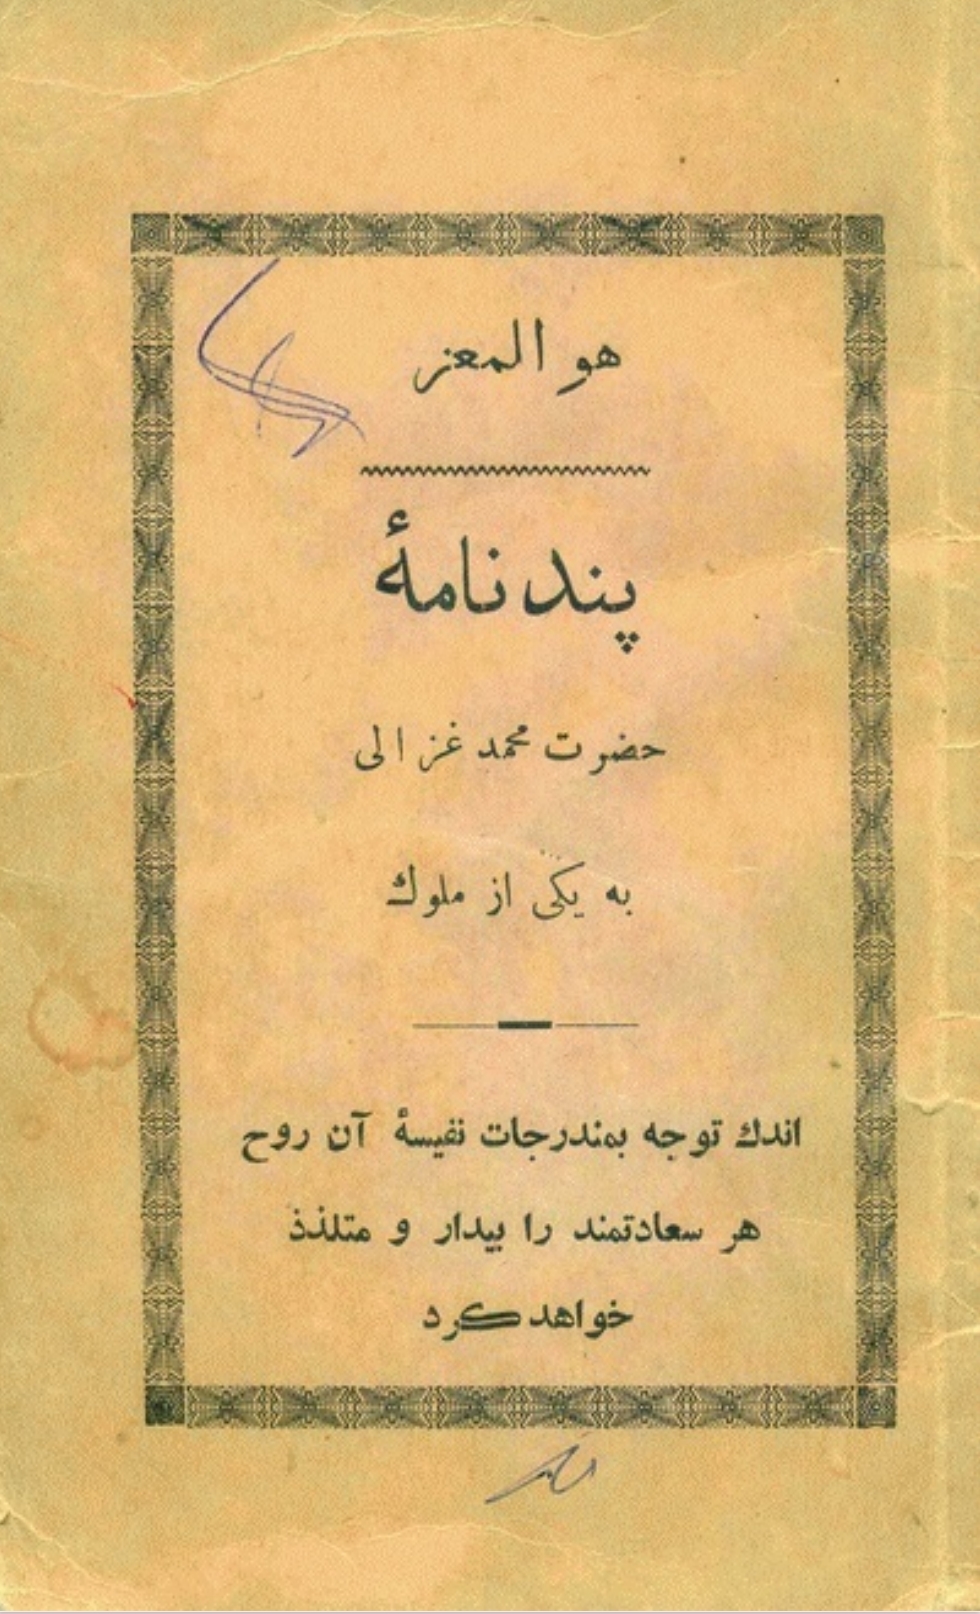 هو المعز
پند نامهٔ
حضرت محمد غزالی
به یکی از ملوك
اندك توجه بمندرجات نفیسهٔ آن روح
هر سعادتمند را بیدار و متلذذ
خواهد کرد